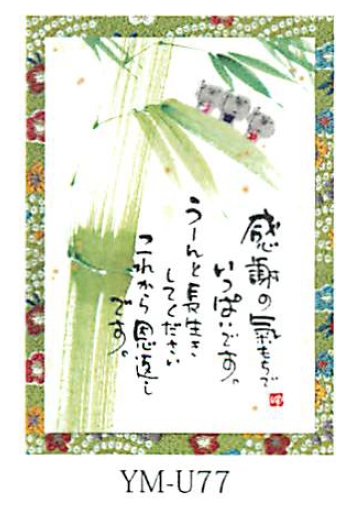 感謝の氣もちで
いっぱいです。
うーんと長生き
してください
これから恩返し
です。
YM-U77